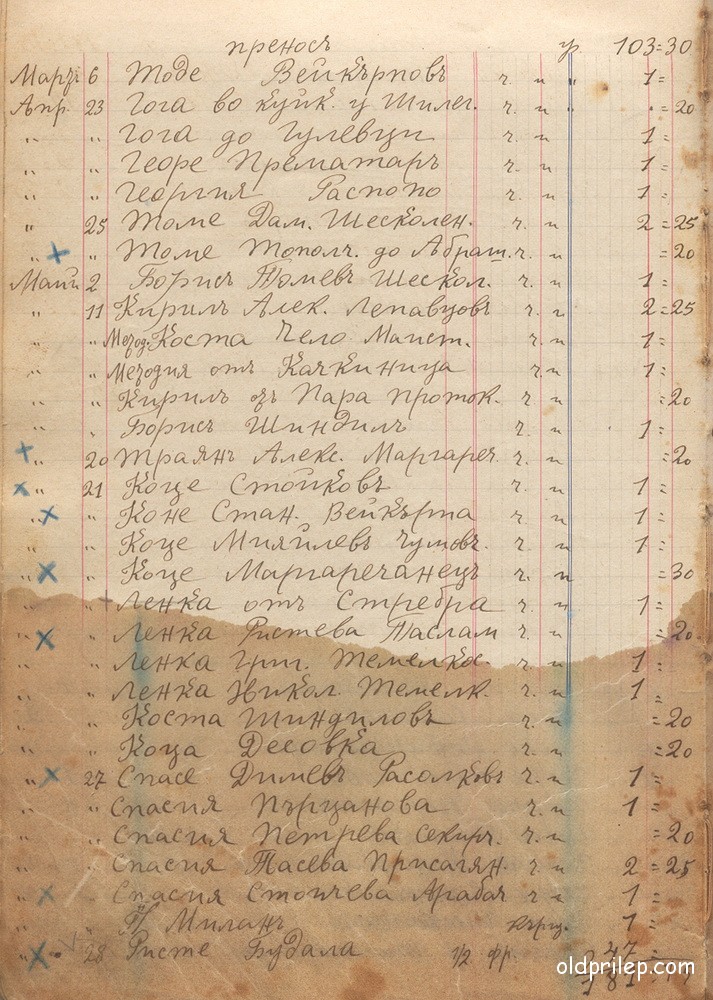 преносъ гр 103=30
Мартъ 6 Тоде Вейкърповъ ч. и " 1=
Апр. 23 Гога во кујк. у Шилег. ч. и " .=20
" " Гога до Гулевци ч. и 1=
" " Георе Прематаръ ч. и 1=
" " Георгия Распопо ч. и 1=
" 25 Томе Дам. Шесколен. ч. и 2=25
" " Томе Тополч. до Абраш. ч. и =20
Маий 2 Борисъ Томевъ Шескол. ч. и 1=
" 11 Кирилъ Алек. Лепавцовъ ч. и 2=25
" " Коста Чело Маист. ч. и 1=
" " Методия отъ Качкиница ч. и 1=
" " Кирилъ Пара проток. ч. и =20
" " Борисъ Шиндилъ ч. и 1=
" 20 Траянъ Алекс. Маргареч. ч. и =20
" 21 Коце Стойковъ ч. и 1=
" " Коне Стан. Вейкърпа ч. и 1=
" " Коце Мияйлевъ ч. и 1=
" " Коце Маргаречанецъ ч. и =30
" " Ленка отъ Стребра ч. и 1=
" " Ленка Ристева Таслам ч. и =20
" " Ленка Григ. Темелкос. ч. и 1=
" " Ленка Никол. Темелк. ч. и 1=
" " Коста Шиндиловъ ч. и =20
" " Коца Десовка ч. и =20
" 27 Спасе Димевъ Расолковъ ч. и 1=
" " Спасия Пърцанова ч. и 1=
" " Спасия Петрева Секир. ч. и =20
" " Спасия Тасева Присагян. ч. и 2=25
" " Спасия Стойчева Арабая ч. и 1=
" " Миланъ 1=
" 28 Ристе Будала 1/2 фр.
oldprilep.com